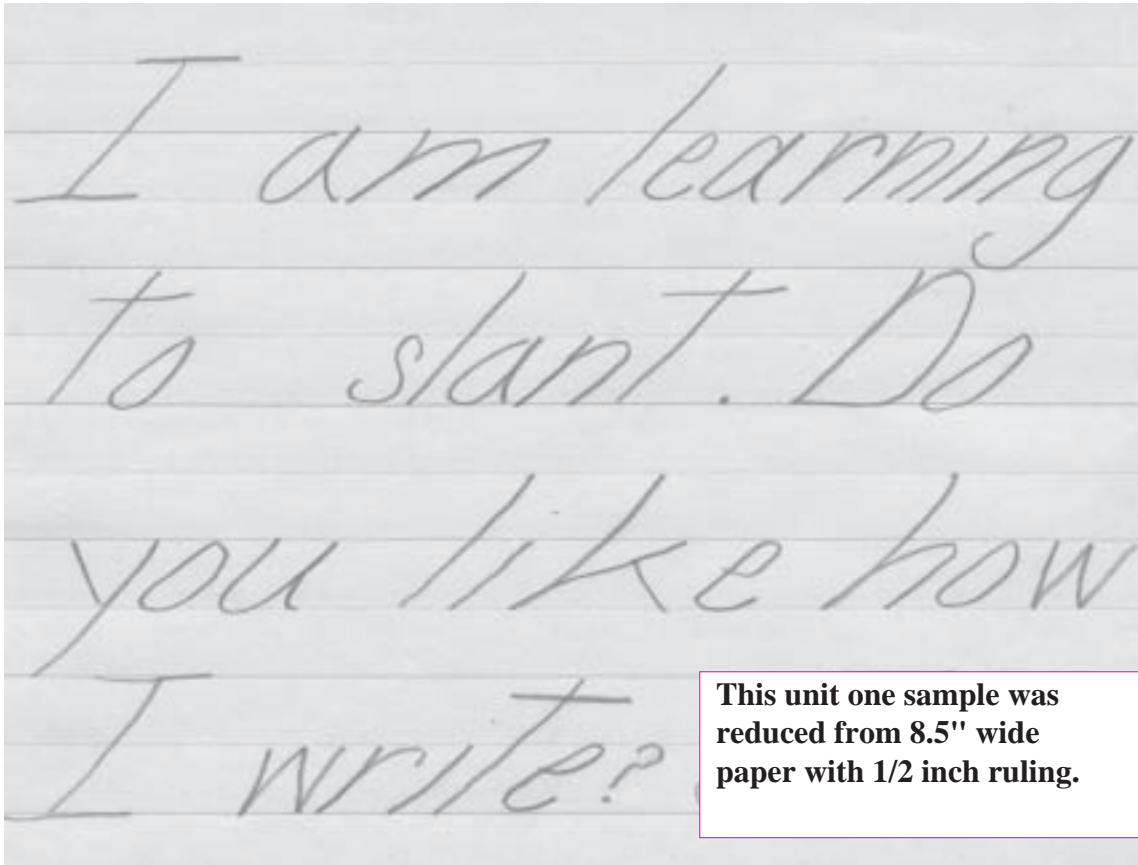 I am learning
to slant. Do
you like how
I write?
This unit one sample was
reduced from 8.5" wide
paper with 1/2 inch ruling.